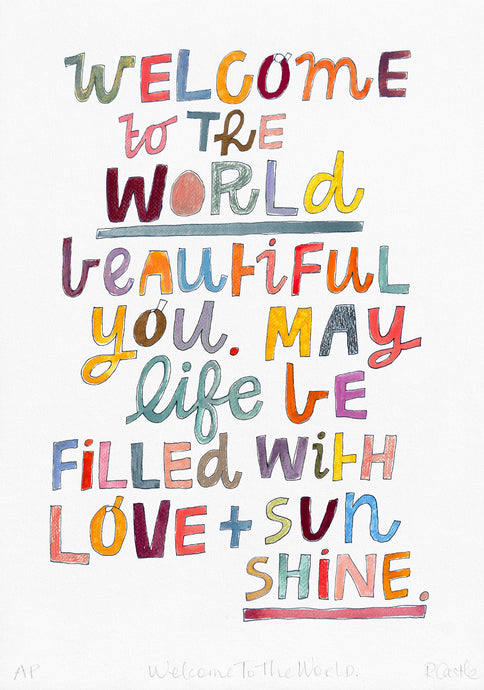 WELCOME
to THE
WORLd
beAUtiFUL
yOU. MAy
life bE
FiLLEd WitH
LOVE + SUN
SHiNE.
AP Welcome To The World. R Castle